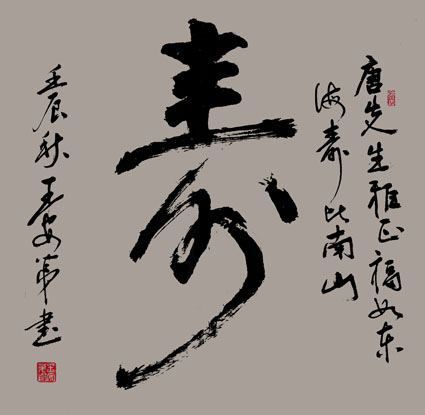 唐先生雅正福如东
海寿比南山
寿
壬辰秋王安第書